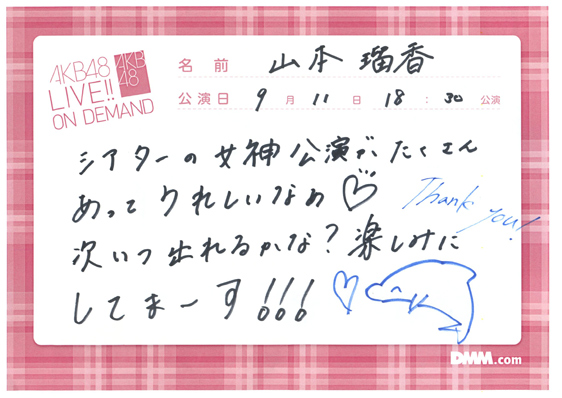 AKB48
LIVE!!
ON DEMAND
AKB
48
名前 山本 瑠香
公演日 9月11日 18:30公演
シアターの女神公演が、たくさん
あってうれしいなぁ♡
Thank you!
次いつ出れるかな？楽しみに
してまーす!!!
DMM.com